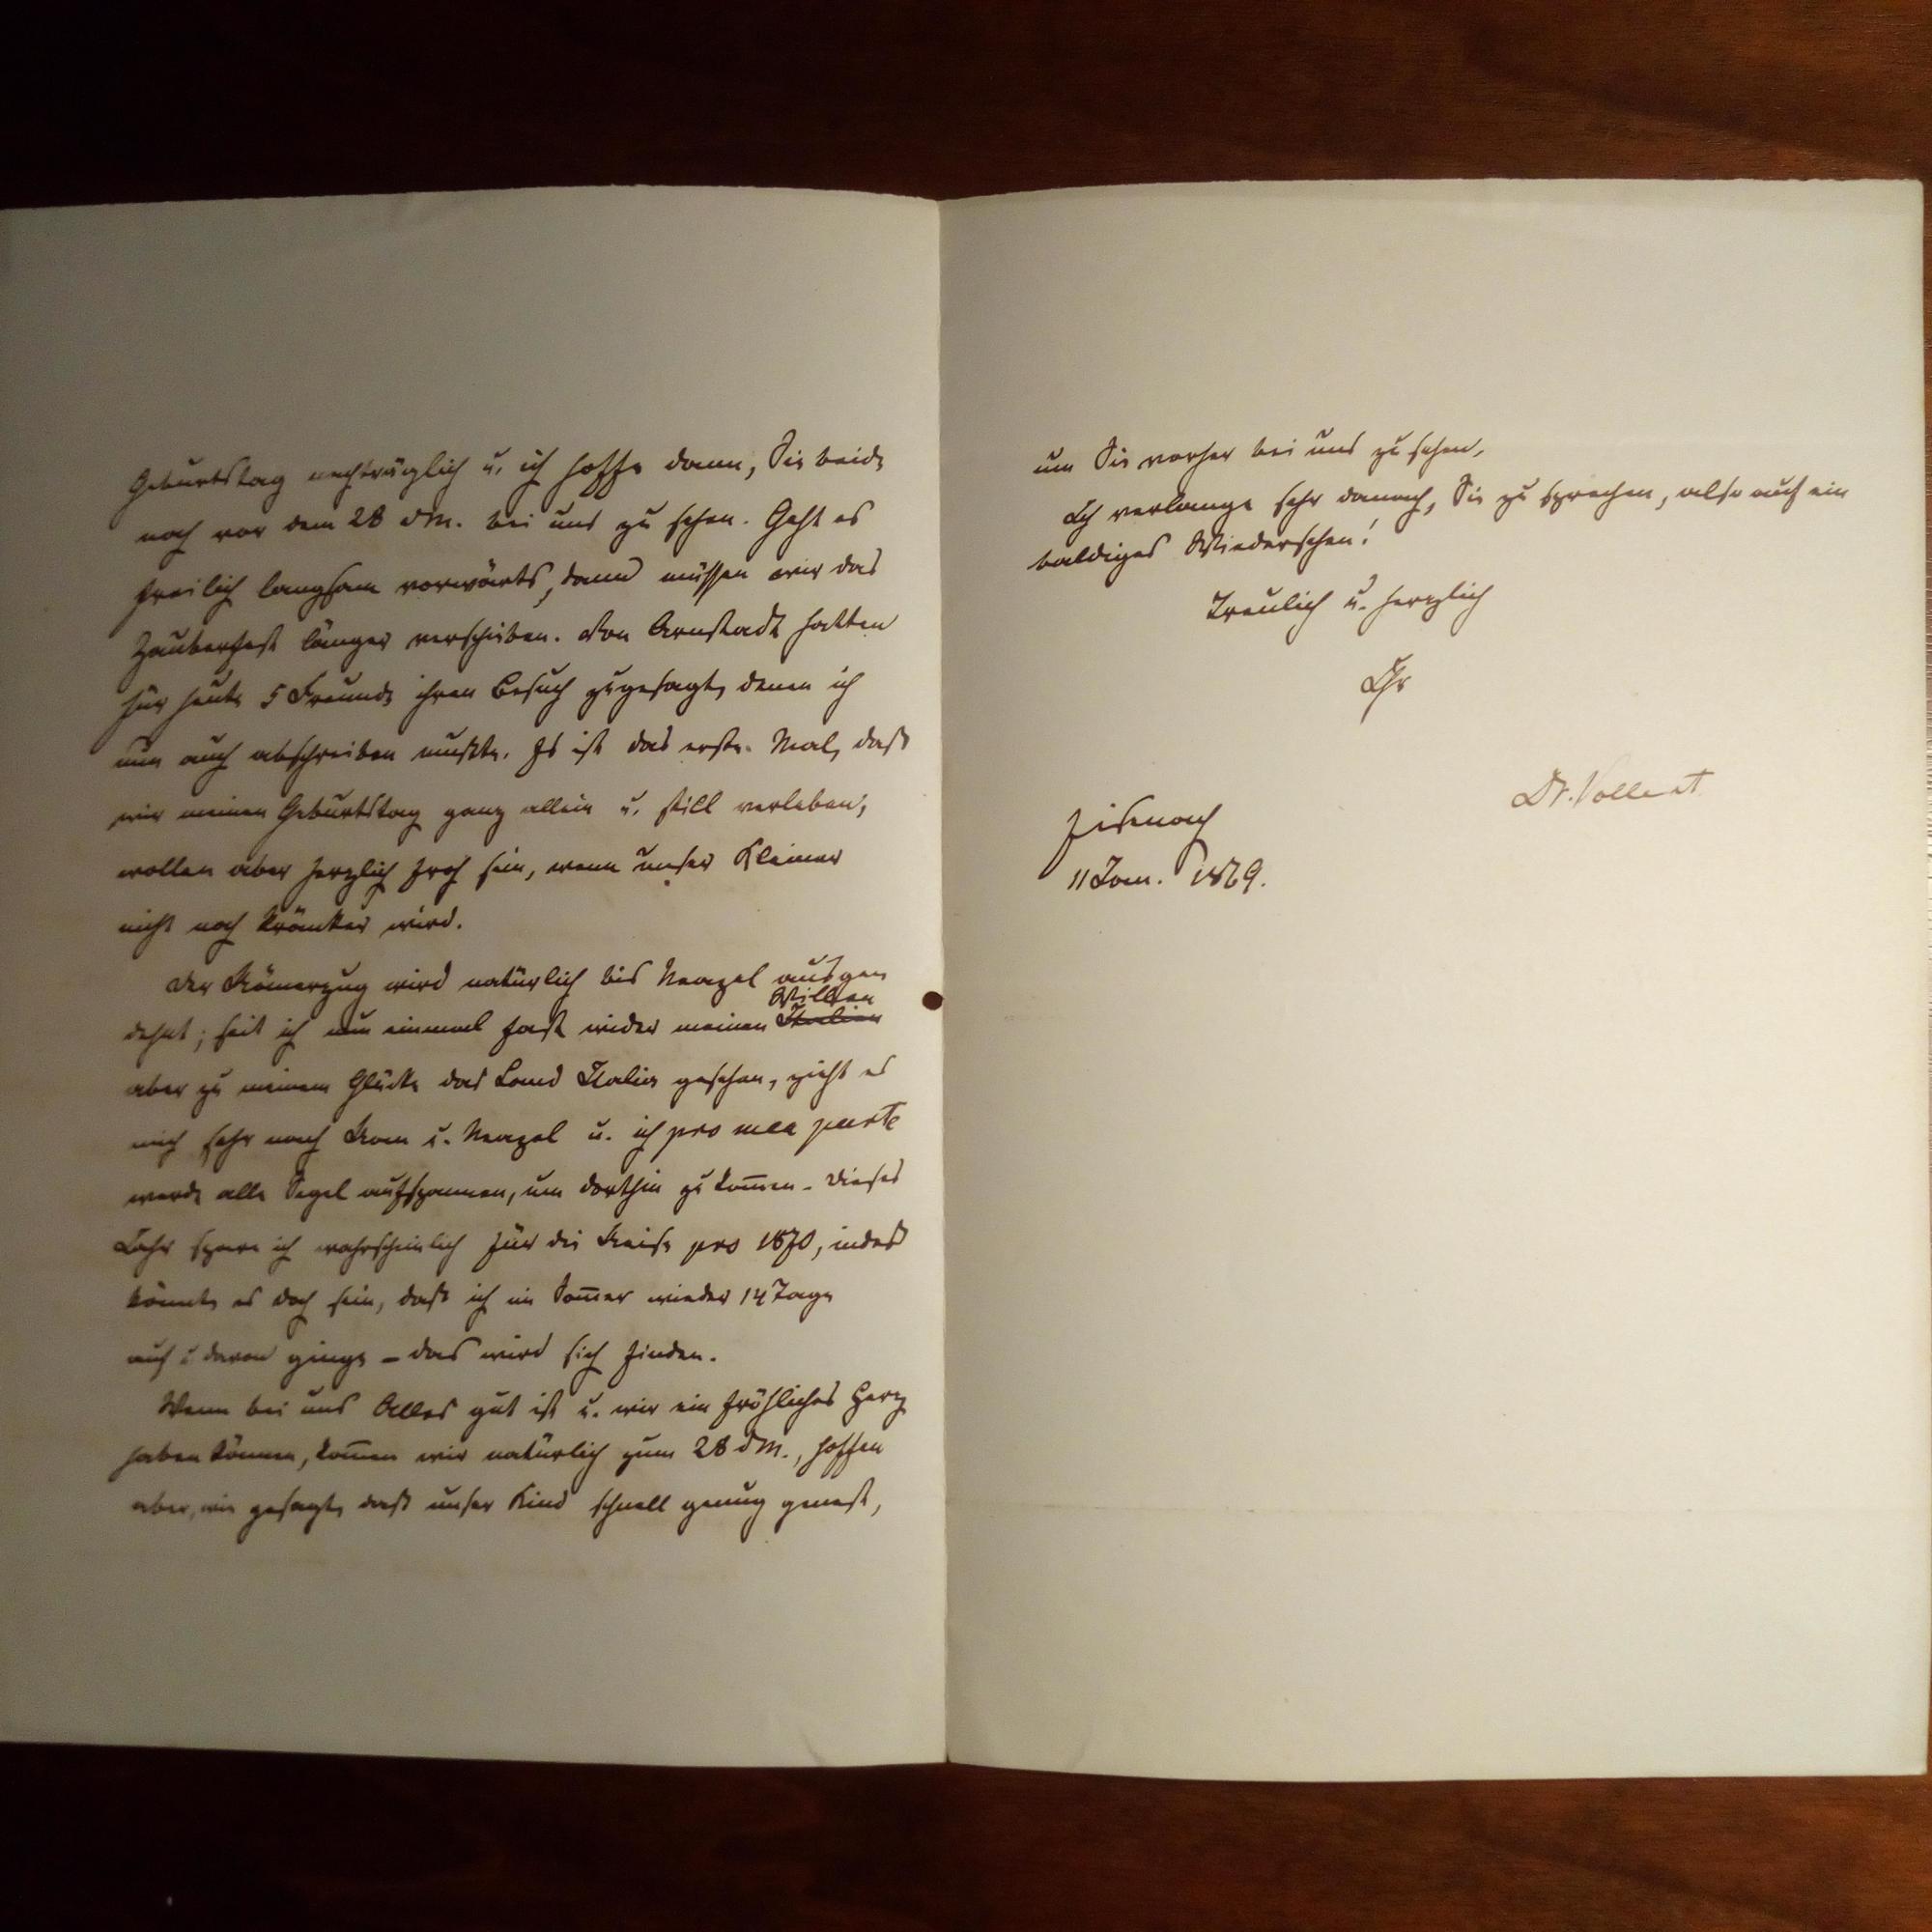 Geburtstag nachträglich u. ich hoffe dann, Sie beide
noch vor dem 28 dM. bei uns zu sehen. Geht es
freilich langsam vorwärts, dann müssen wir das
Zauberfest länger verschieben. Von Arnstadt hatten
für heute 5 Freunde ihren Besuch zugesagt, denen ich
nun auch abschreiben mußte. Es ist das erste Mal, daß
wir meinen Geburtstag ganz allein u. still verleben,
wollen aber herzlich froh sein, wenn unser Kleiner
nicht noch kränker wird.
Der Römerzug wird natürlich bis Neapel ausge
dehnt; seit ich nun einmal fast wider meinen Italien Willen
aber zu meinem Glücke das Land Italia gesehen, zieht es
mich sehr nach Rom u. Neapel u. ich pro mea parte
werde alle Segel aufspannen, um dorthin zu kom̄en. Dieses
Jahr spare ich wahrscheinlich für die Reise pro 1870, indeß
könnte es doch sein, daß ich im Som̄er wieder 14 Tage
auf u. davon ginge – das wird sich finden.
Wenn bei uns Alles gut ist u. wir ein fröhliches Herz
haben können, kom̄en wir natürlich zum 28 dM., hoffen
aber, wie gesagt, daß unser Kind schnell genug genest,
um Sie vorher bei uns zu sehen.
Ich verlange sehr danach, Sie zu sprechen, also auf ein
baldiges Wiedersehen!
Treulich u. herzlich
Ihr
Dr.
Eisenach
11 Jan. 1869.